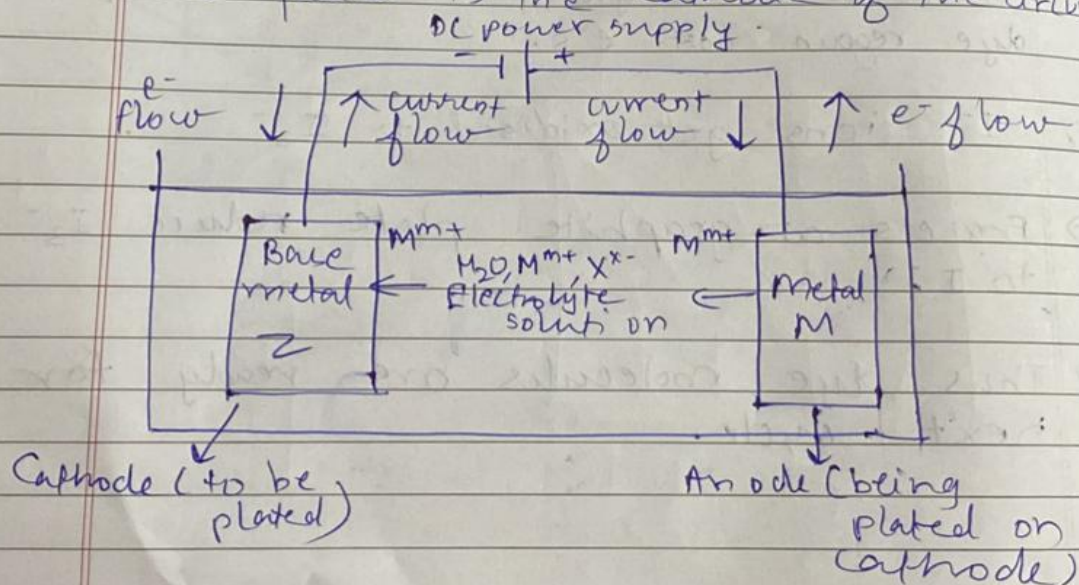 is the cathode of the
DC power supply.
- +
e- flow
current flow
current flow
e- flow
Base metal
Z
Mm+
H2O, Mm+, Xx-
Electrolyte
solution
Mm+
Metal
M
Cathode (to be
plated)
Anode (being
plated on
cathode)